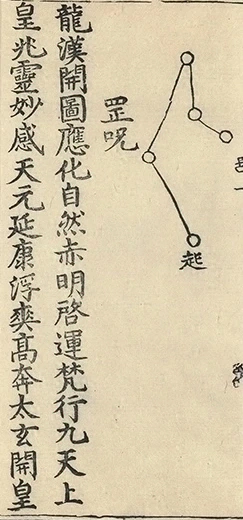 起
罡呪
龍漢開圖應化自然赤明啓運梵行九天上
皇兆靈妙感天元延康浮爽髙奔太玄開皇